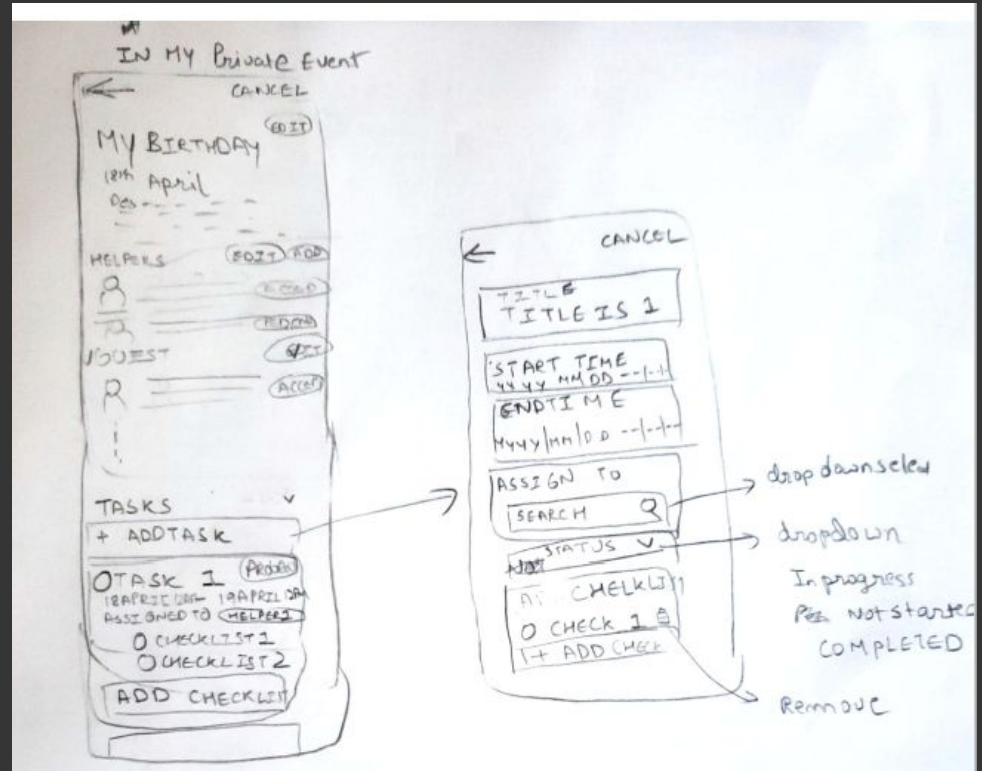 IN MY Private Event
CANCEL
EDIT
MY BIRTHDAY
18th April
Des
HELPERS
EDIT ADD
ACCEPT
TASKS
+ ADD TASK
TASK 1
18APRIL 19APRIL
ASSIGNED TO HELPER1
CHECKLIST 1
CHECKLIST 2
ADD CHECKLIST
CANCEL
TITLE
TITLE IS 1
START TIME
YYYY MM DD --/--
END TIME
YYYY/MM/DD --/--
ASSIGN TO
SEARCH
STATUS
CHELKLIST
CHECK 1
+ ADD CHECK
drop down select
dropdown
In progress
Not started
COMPLETED
Remove